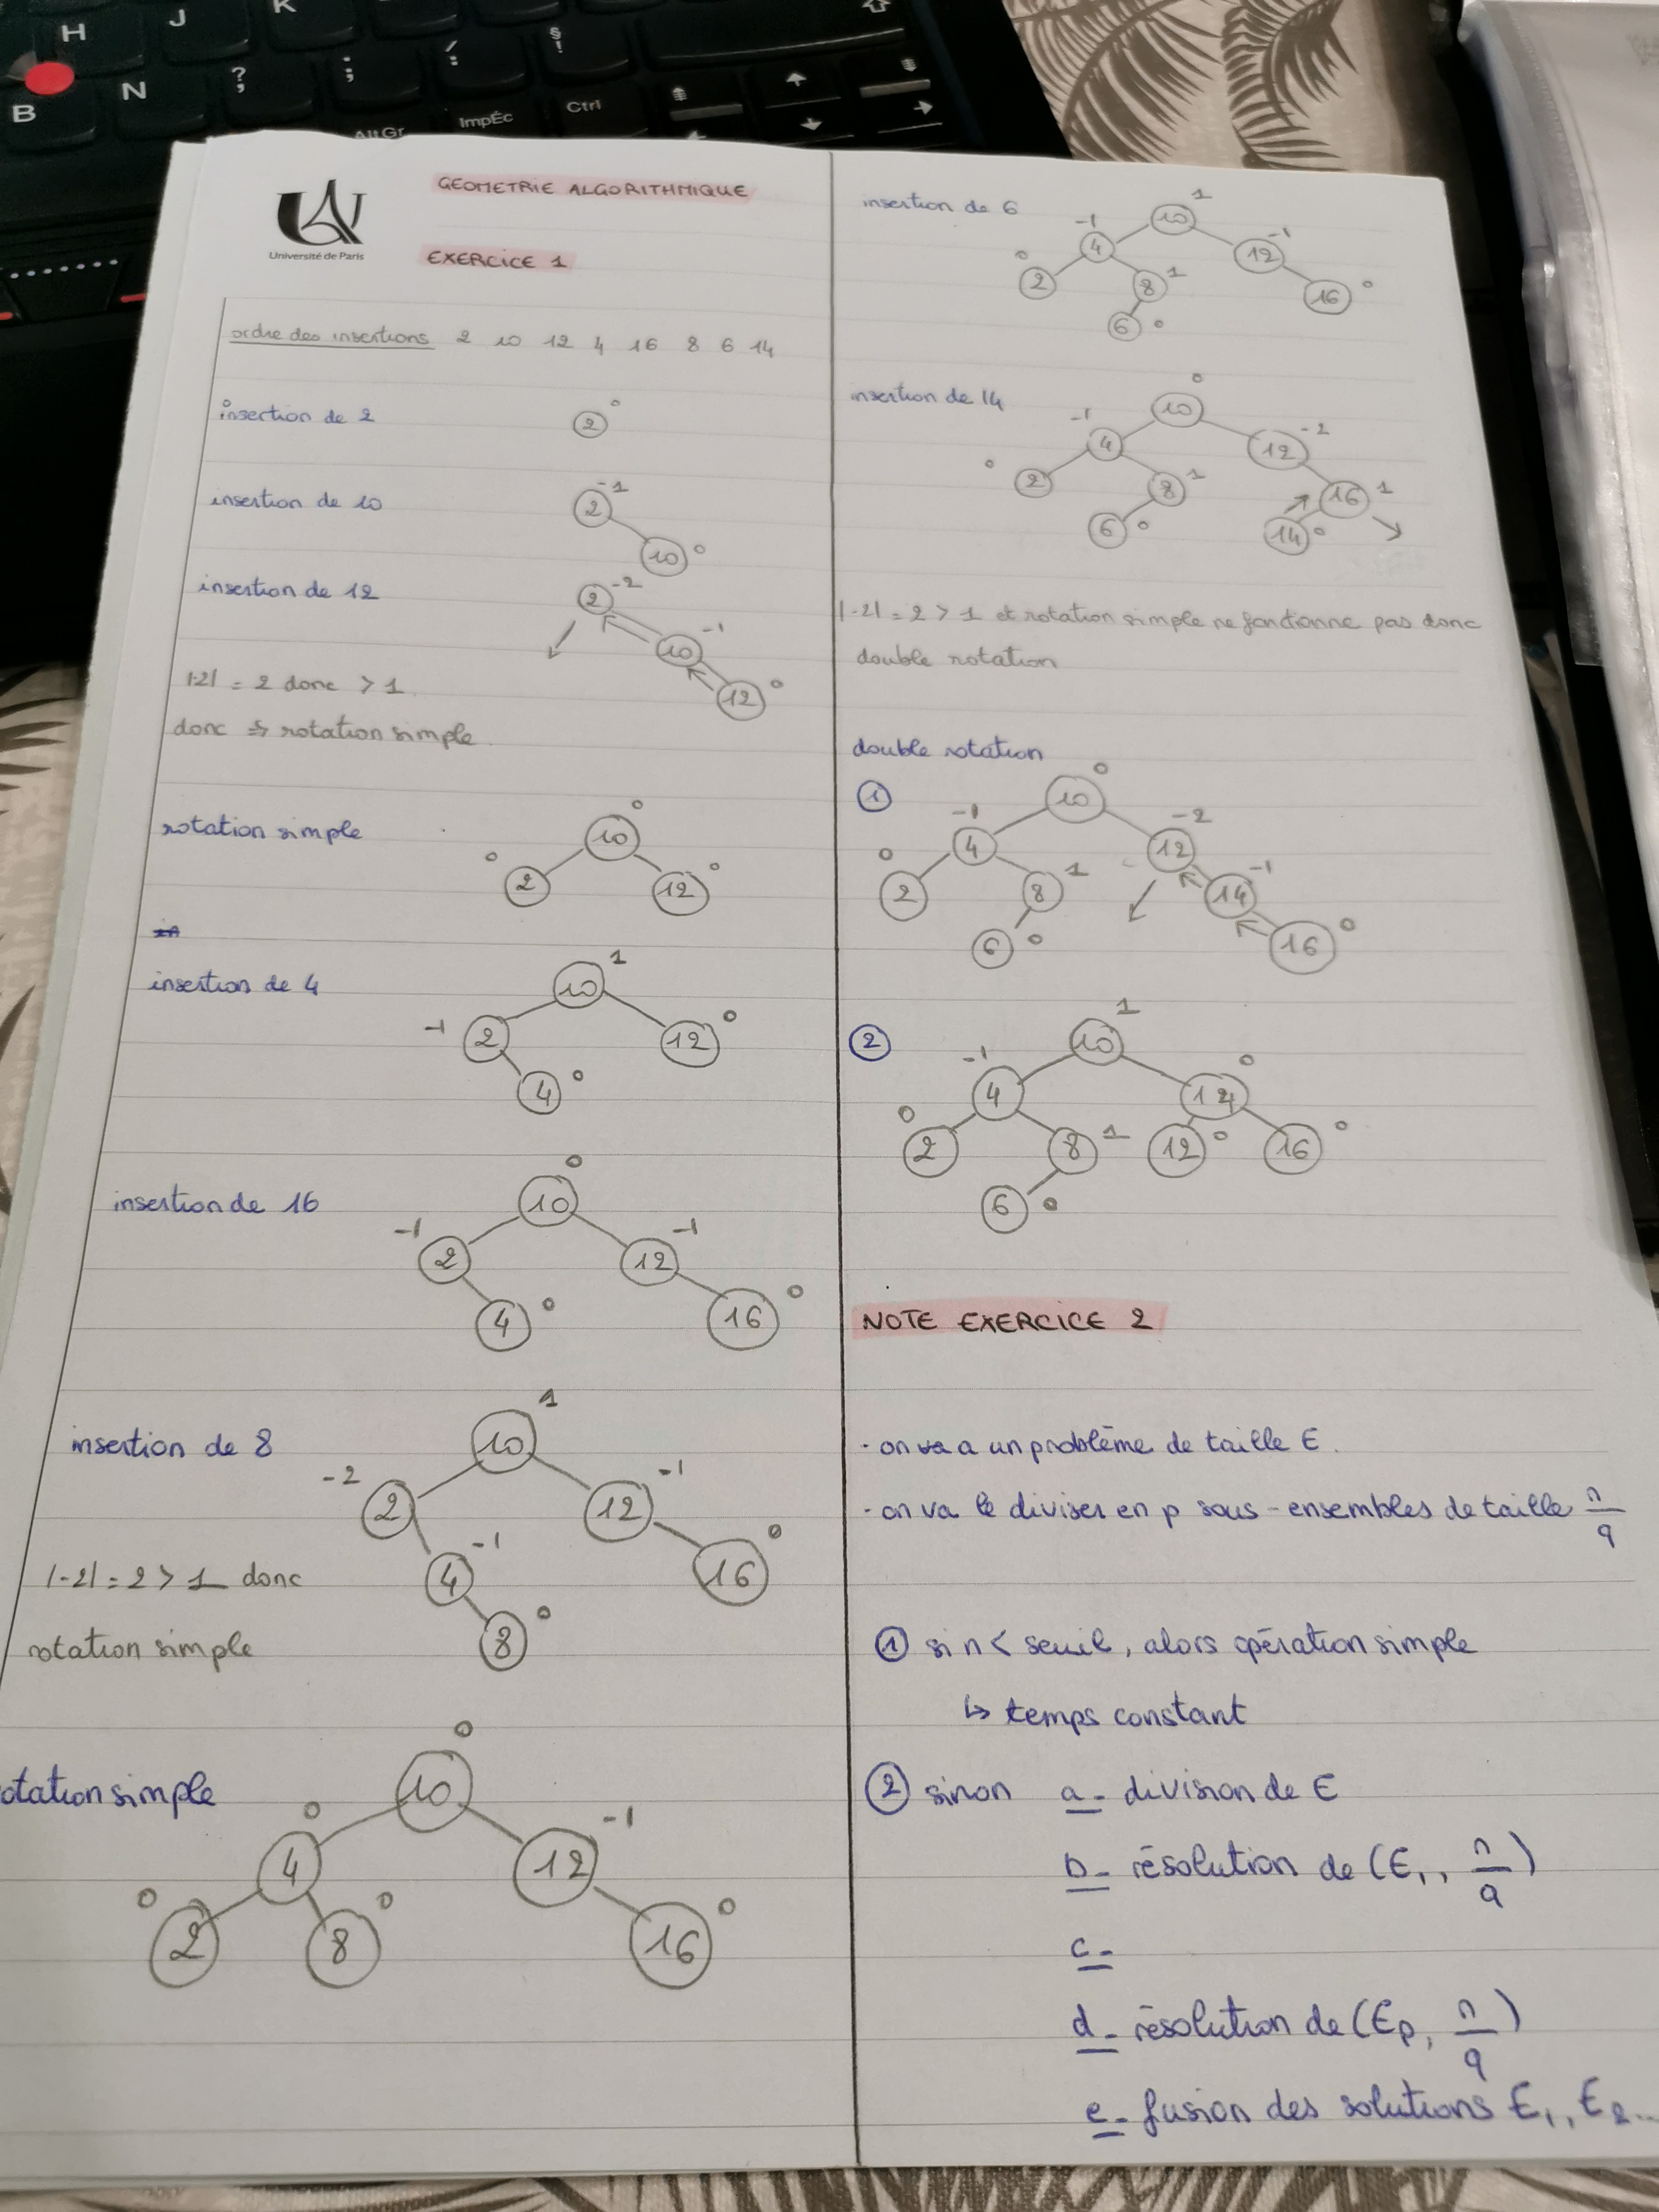 H
J
K
B
N
?
;
:
§
!
AltGr
ImpÉc
Ctrl
Université de Paris
GEOMETRIE ALGORITHMIQUE
EXERCICE 1
ordre des insertions 2 10 12 4 16 8 6 14
insertion de 2
0
2
insertion de 10
-1
2
10 0
insertion de 12
2 -2
10 -1
12 0
|-2| = 2 donc > 1
donc ⇒ rotation simple
rotation simple
0
10
0 0
2 12
insertion de 4
1
10
-1 2 12 0
4 0
insertion de 16
0
10
-1 -1
2 12
4 0 16 0
insertion de 8
1
10
-2 -1
2 12
-1 0
4 16
8 0
|-2| = 2 > 1 donc
rotation simple
otation simple
0
10
0 -1
4 12
0 0 0
2 8 16
insertion de 6
1
-1 10
4 12 -1
0 2 8 1 16 0
6 0
insertion de 14
0
10
-1 -2
4 12
0 2 8 1 16 1
6 0 14 0
|-2| = 2 > 1 et rotation simple ne fonctionne pas donc
double rotation
double rotation
1
0
10
-1 -2
4 12
0 1 -1
2 8 14
6 0 16 0
2
1
10
-1 0
4 14
0 2 8 1 12 0 16 0
6 0
NOTE EXERCICE 2
- on a un problème de taille E.
- on va le diviser en p sous-ensembles de taille n/q
1 si n < seuil, alors opération simple
↳ temps constant
2 sinon a- division de E
b- résolution de (E1, n/q)
c-
d- résolution de (Ep, n/q)
e- fusion des solutions E1, E2...